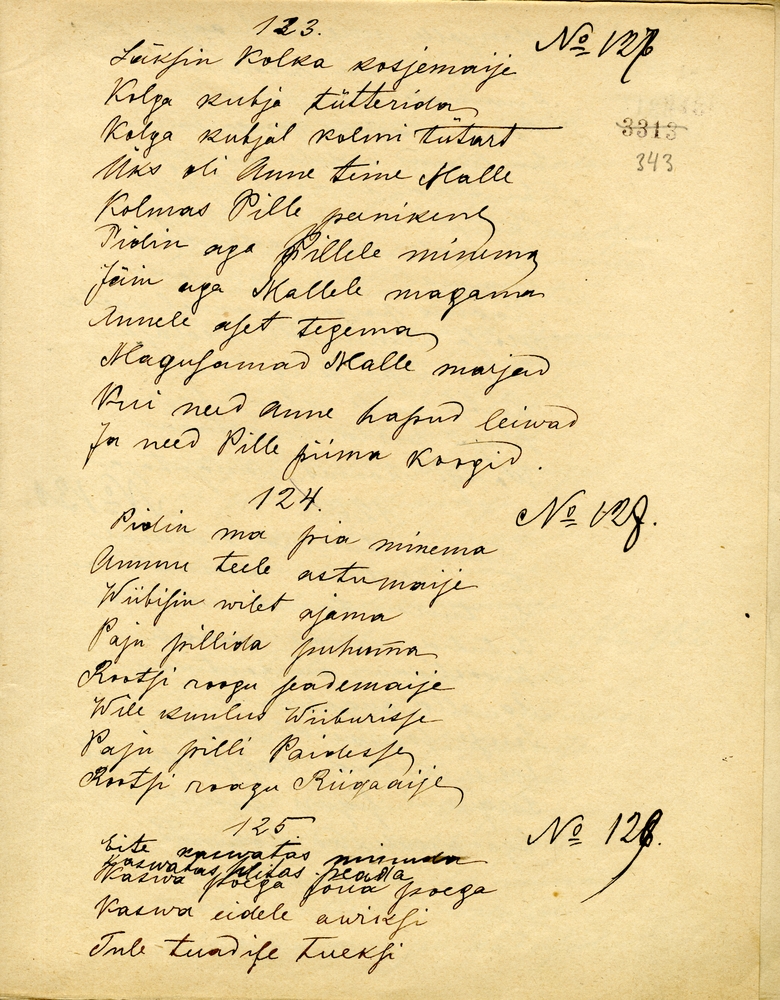 123.
No 127
Läksin Kolka kosjemaije
Kolga kubja tütterida
3313
Kolga kubjal kolmi tütart
343
Üks oli Anne teine Malle
Kolmas Pille peenikene
Pidin aga Pillele minema
Jäin aga Mallele magama
Annele aset tegema
Magusamad Malle marjad
Kui need Anne hapud leiwad
Ja need Pille piima koogid.
124.
No 128.
Pidin ma siia minema
Ammu teele astumaije
Wiibisin wilet ajama
Paju pillida puhuma
Rootsi roogu seademaije
Wile kuulus Wiiburisse
Paju pilli Paidesse
Rootsi roogu Riigaaije
125
No 129.
Eite kaswatas minuda
Kaswatas hellitas seada
Kaswa poega jõua poega
Kaswa eidele awiksi
Tule tuadile tueksi